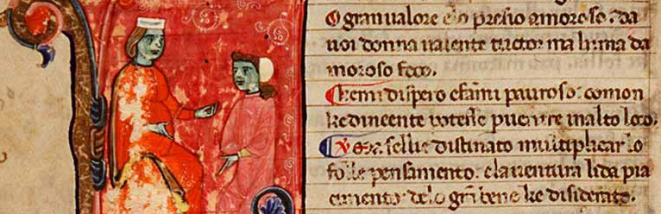 O gran ualore e o presio amoroso . da
uoi donna ualente tuctor ma luma da
moroso foco.
kemi dispero efami pauroso. comon
kedineente uolesse puenire inalto loco.
sellie distinato multiplicar lo
folle pensamento. elauentura lida pia
cimento. delo grã bene ke